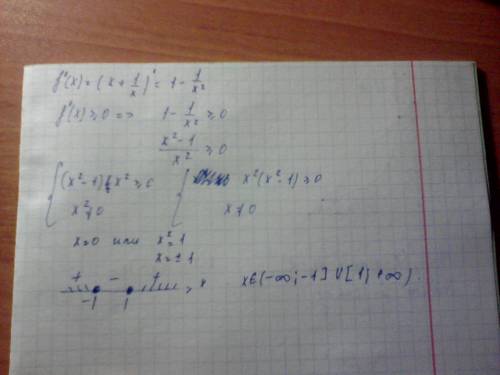 f'(x) = (x + 1/x)' = 1 - 1/x²
f'(x) ≥ 0 => 1 - 1/x² ≥ 0
(x² - 1)/x² ≥ 0
{ (x² - 1) x² ≥ 0 { x²(x² - 1) ≥ 0
x² ≠ 0 x ≠ 0
x = 0 или x² = 1
x = ± 1
+ - + x x ∈ (-∞; -1] ∪ [1; +∞).
-1 1